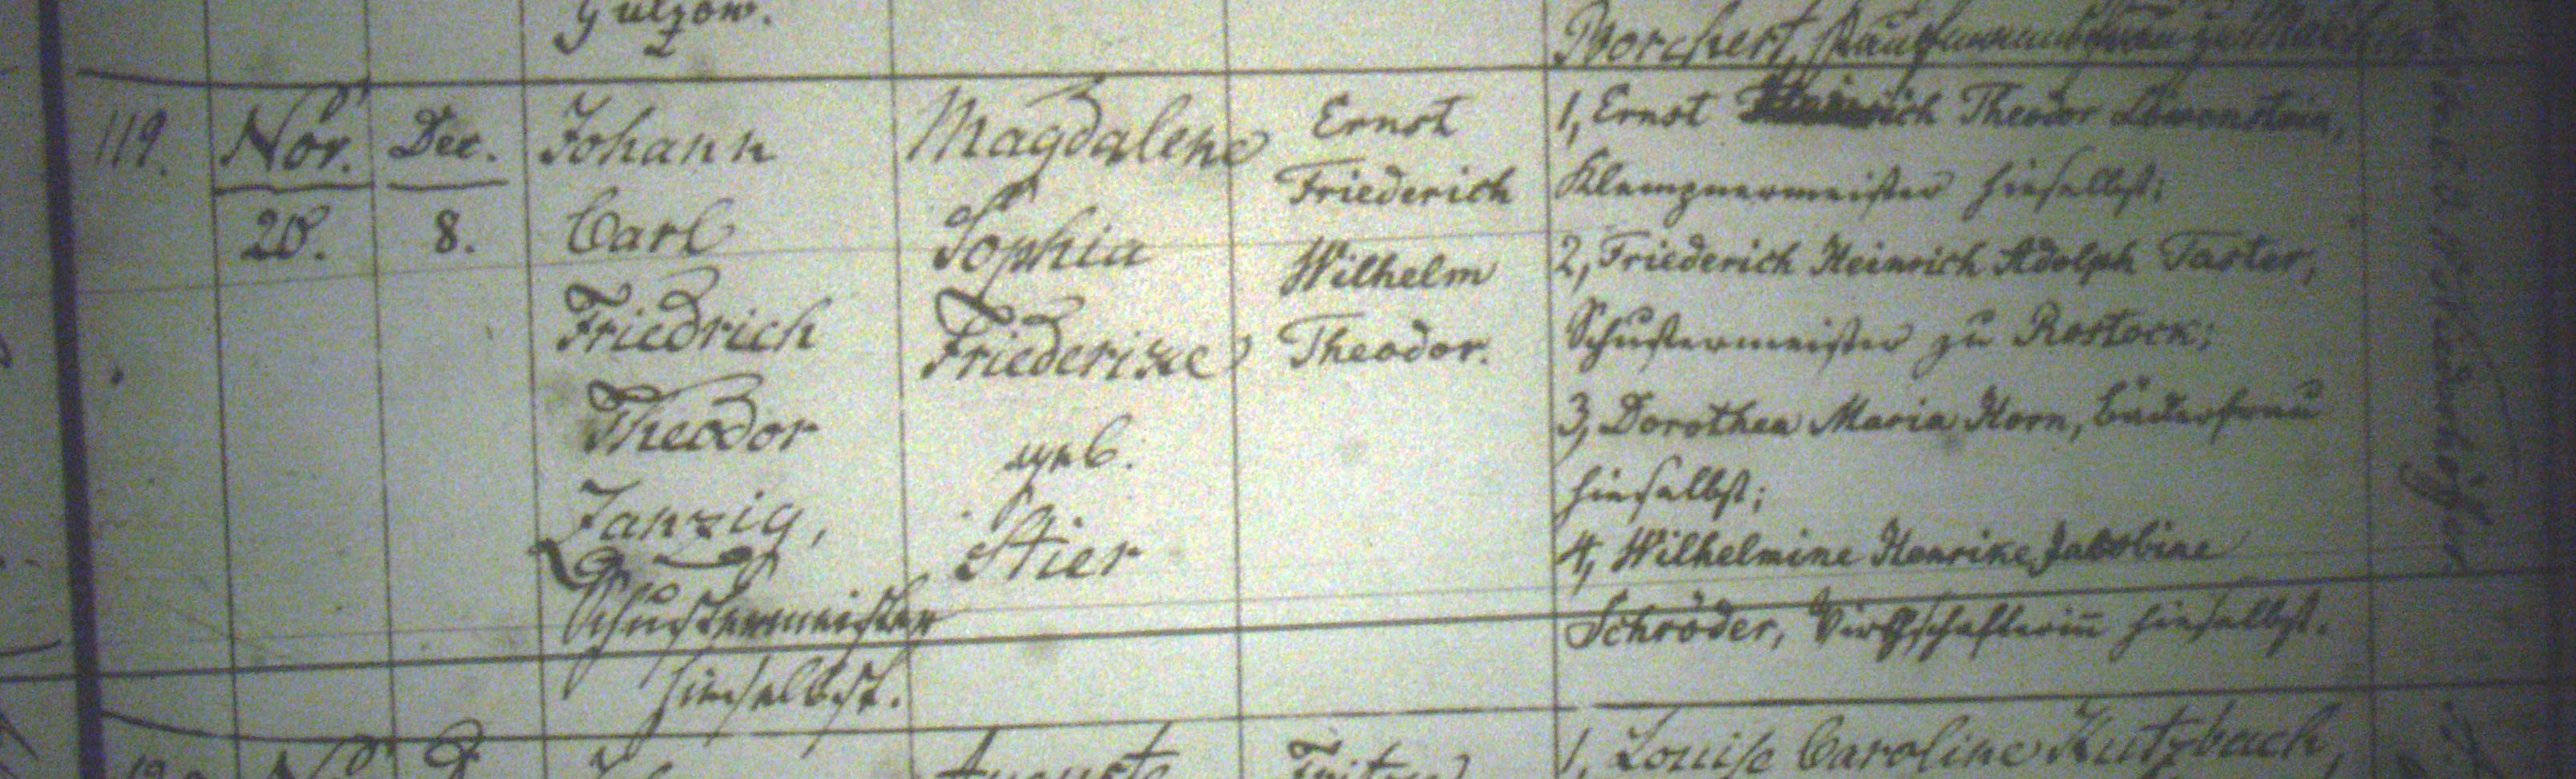 Gülzow.
Borchert, Kaufmannsfrau zu
119.
Nov.
20.
Dec.
8.
Johann
Carl
Friedrich
Theodor
Janzig,
Schustermeister
hieselbst.
Magdalene
Sophia
Friederike
geb.
Stier
Ernst
Friederich
Wilhelm
Theodor.
1, Ernst Theodor Löwenstein,
Klempnermeister hieselbst;
2, Friederich Heinrich Adolph Taster,
Schustermeister zu Rostock;
3, Dorothea Maria Korn, Bäckerfrau
hieselbst;
4, Wilhelmine Henrike Jacobine
Schröder, Wirthschafterin hieselbst.
1, Louise Caroline Kutzbach,